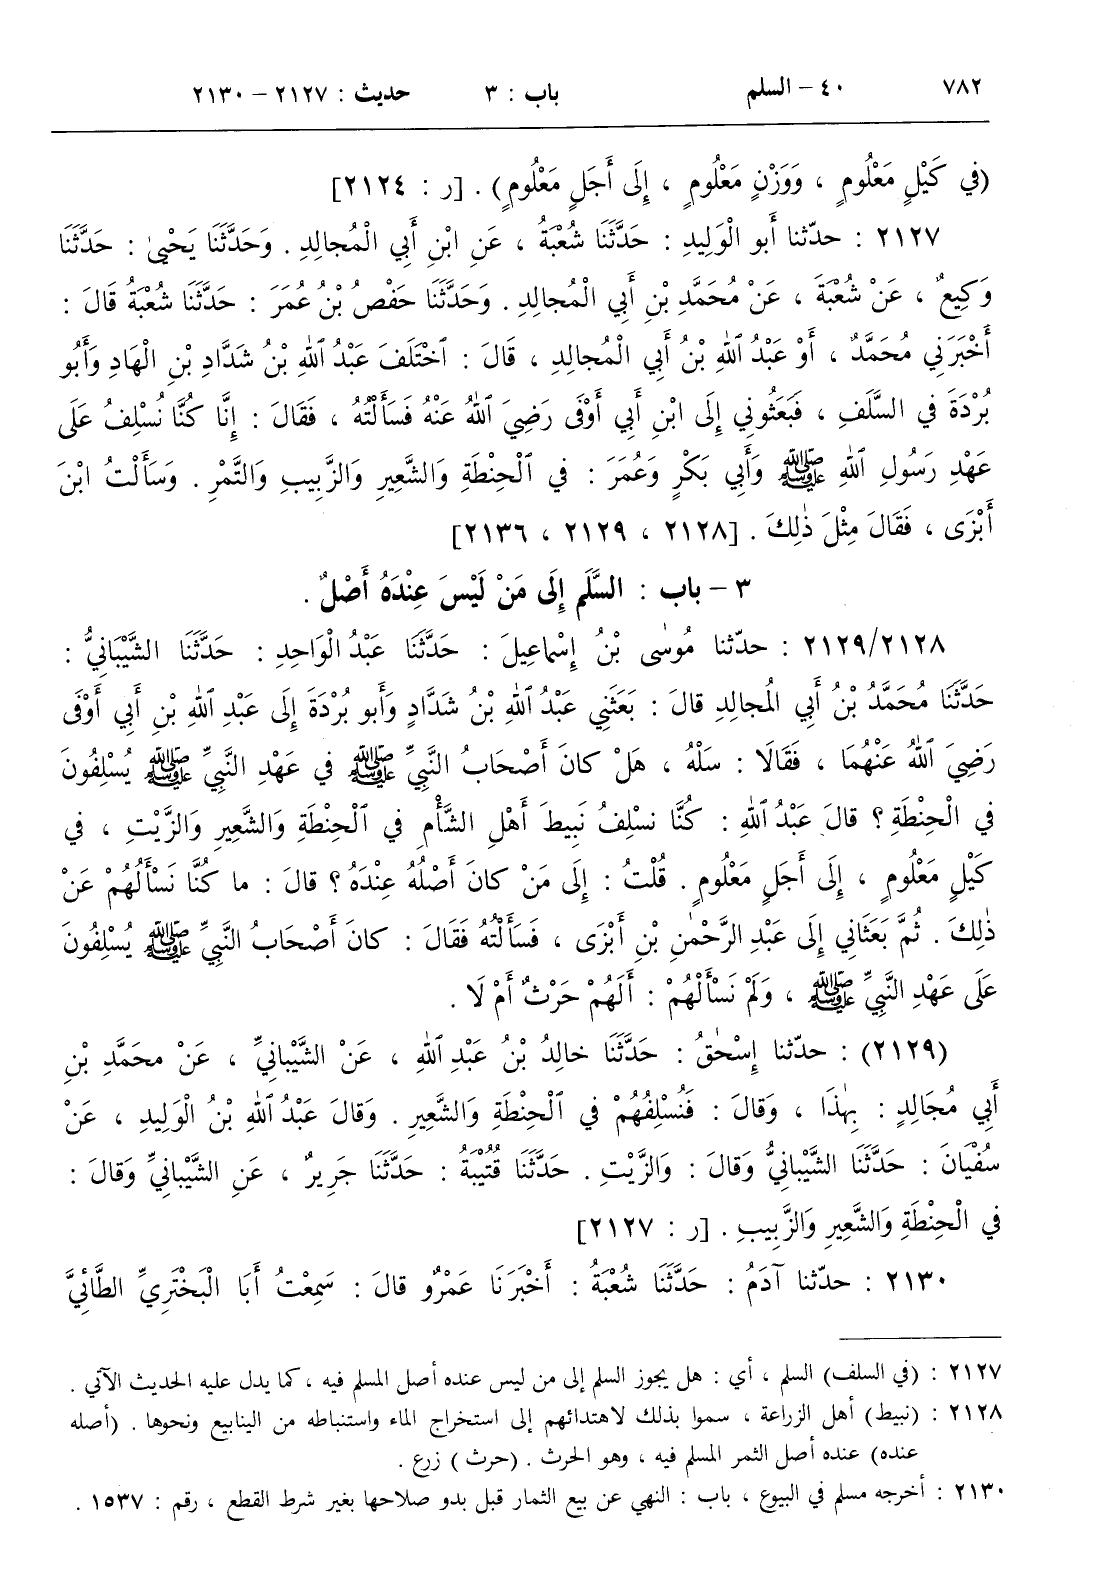 ٧٨٢ ٤٠ – السلم باب : ٣ حديث : ٢١٢٧ – ٢١٣٠
(في كَيْلٍ مَعْلُومٍ ، وَوَزْنٍ مَعْلُومٍ ، إِلَى أَجَلٍ مَعْلُومٍ) . [ر : ٢١٢٤]
٢١٢٧ : حدّثنا أَبو الْوَلِيدِ : حَدَّثَنَا شُعْبَةُ ، عَنِ ابْنِ أَبِي الْمُجالِدِ . وَحَدَّثَنَا يَحْيىٰ : حَدَّثَنَا
وَكِيعٌ ، عَنْ شُعْبَةَ ، عَنْ مُحَمَّدِ بْنِ أَبِي الْمُجالِدِ . وَحَدَّثَنَا حَفْصُ بْنُ عُمَرَ : حَدَّثَنَا شُعْبَةُ قالَ :
أَخْبَرَنِي مُحَمَّدٌ ، أَوْ عَبْدُ اللهِ بْنُ أَبِي الْمُجالِدِ ، قالَ : اخْتَلَفَ عَبْدُ اللهِ بْنُ شَدَّادِ بْنِ الْهَادِ وَأَبُو
بُرْدَةَ في السَّلَفِ ، فَبَعَثُونِي إِلَى ابْنِ أَبِي أَوْفَى رَضِيَ اللهُ عَنْهُ فَسَأَلْتُهُ ، فَقَالَ : إِنَّا كُنَّا نُسْلِفُ عَلَى
عَهْدِ رَسُولِ اللهِ ﷺ وَأَبِي بَكْرٍ وَعُمَرَ : في الْحِنْطَةِ وَالشَّعِيرِ وَالزَّبِيبِ وَالتَّمْرِ . وَسَأَلْتُ ابْنَ
أَبْزَى ، فَقَالَ مِثْلَ ذٰلِكَ . [٢١٢٨ ، ٢١٢٩ ، ٢١٣٦]
٣ – باب : السَّلَمِ إِلَى مَنْ لَيْسَ عِنْدَهُ أَصْلٌ .
٢١٢٩/٢١٢٨ : حدّثنا مُوسٰى بْنُ إِسْماعِيلَ : حَدَّثَنَا عَبْدُ الْوَاحِدِ : حَدَّثَنَا الشَّيْبَانِيُّ :
حَدَّثَنَا مُحَمَّدُ بْنُ أَبِي الْمُجالِدِ قالَ : بَعَثَنِي عَبْدُ اللهِ بْنُ شَدَّادٍ وَأَبو بُرْدَةَ إِلَى عَبْدِ اللهِ بْنِ أَبِي أَوْفَى
رَضِيَ اللهُ عَنْهُمَا ، فَقَالَا : سَلْهُ ، هَلْ كانَ أَصْحَابُ النَّبِيِّ ﷺ في عَهْدِ النَّبِيِّ ﷺ يُسْلِفُونَ
في الْحِنْطَةِ ؟ قالَ عَبْدُ اللهِ : كُنَّا نسْلِفُ نَبِيطَ أَهْلِ الشَّأْمِ في الْحِنْطَةِ وَالشَّعِيرِ وَالزَّيْتِ ، في
كَيْلٍ مَعْلُومٍ ، إِلَى أَجَلٍ مَعْلُومٍ . قُلْتُ : إِلَى مَنْ كانَ أَصْلُهُ عِنْدَهُ ؟ قالَ : ما كُنَّا نَسْأَلُهُمْ عَنْ
ذٰلِكَ . ثُمَّ بَعَثَانِي إِلَى عَبْدِ الرَّحْمٰنِ بْنِ أَبْزَى ، فَسَأَلْتُهُ فَقَالَ : كانَ أَصْحَابُ النَّبِيِّ ﷺ يُسْلِفُونَ
عَلَى عَهْدِ النَّبِيِّ ﷺ ، وَلَمْ نَسْأَلْهُمْ : أَلَهُمْ حَرْثٌ أَمْ لَا .
(٢١٢٩) : حدّثنا إِسْحٰقُ : حَدَّثَنَا خالِدُ بْنُ عَبْدِ اللهِ ، عَنْ الشَّيْبانِيِّ ، عَنْ محَمَّدِ بْنِ
أَبِي مُجَالِدٍ : بِهٰذَا ، وَقالَ : فَنُسْلِفُهُمْ في الْحِنْطَةِ وَالشَّعِيرِ . وَقالَ عَبْدُ اللهِ بْنُ الْوَلِيدِ ، عَنْ
سُفْيَانَ : حَدَّثَنَا الشَّيْبَانِيُّ وَقالَ : وَالزَّيْتِ . حَدَّثَنَا قُتَيْبَةُ : حَدَّثَنَا جَرِيرٌ ، عَنِ الشَّيْبانِيِّ وَقالَ :
في الْحِنْطَةِ وَالشَّعِيرِ وَالزَّبِيبِ . [ر : ٢١٢٧]
٢١٣٠ : حدّثنا آدَمُ : حَدَّثَنَا شُعْبَةُ : أَخْبَرَنَا عَمْرٌو قالَ : سَمِعْتُ أَبَا الْبَخْتَرِيِّ الطَّائِيَّ
٢١٢٧ : (في السلف) السلم ، أي : هل يجوز السلم إلى من ليس عنده أصل المسلم فيه ، كما يدل عليه الحديث الآتي .
٢١٢٨ : (نبيط) أهل الزراعة ، سموا بذلك لاهتدائهم إلى استخراج الماء واستنباطه من الينابيع ونحوها . (أصله
عنده) عنده أصل الثمر المسلم فيه ، وهو الحرث . (حرث ) زرع .
٢١٣٠ : أخرجه مسلم في البيوع ، باب : النهي عن بيع الثمار قبل بدو صلاحها بغير شرط القطع ، رقم : ١٥٣٧ .